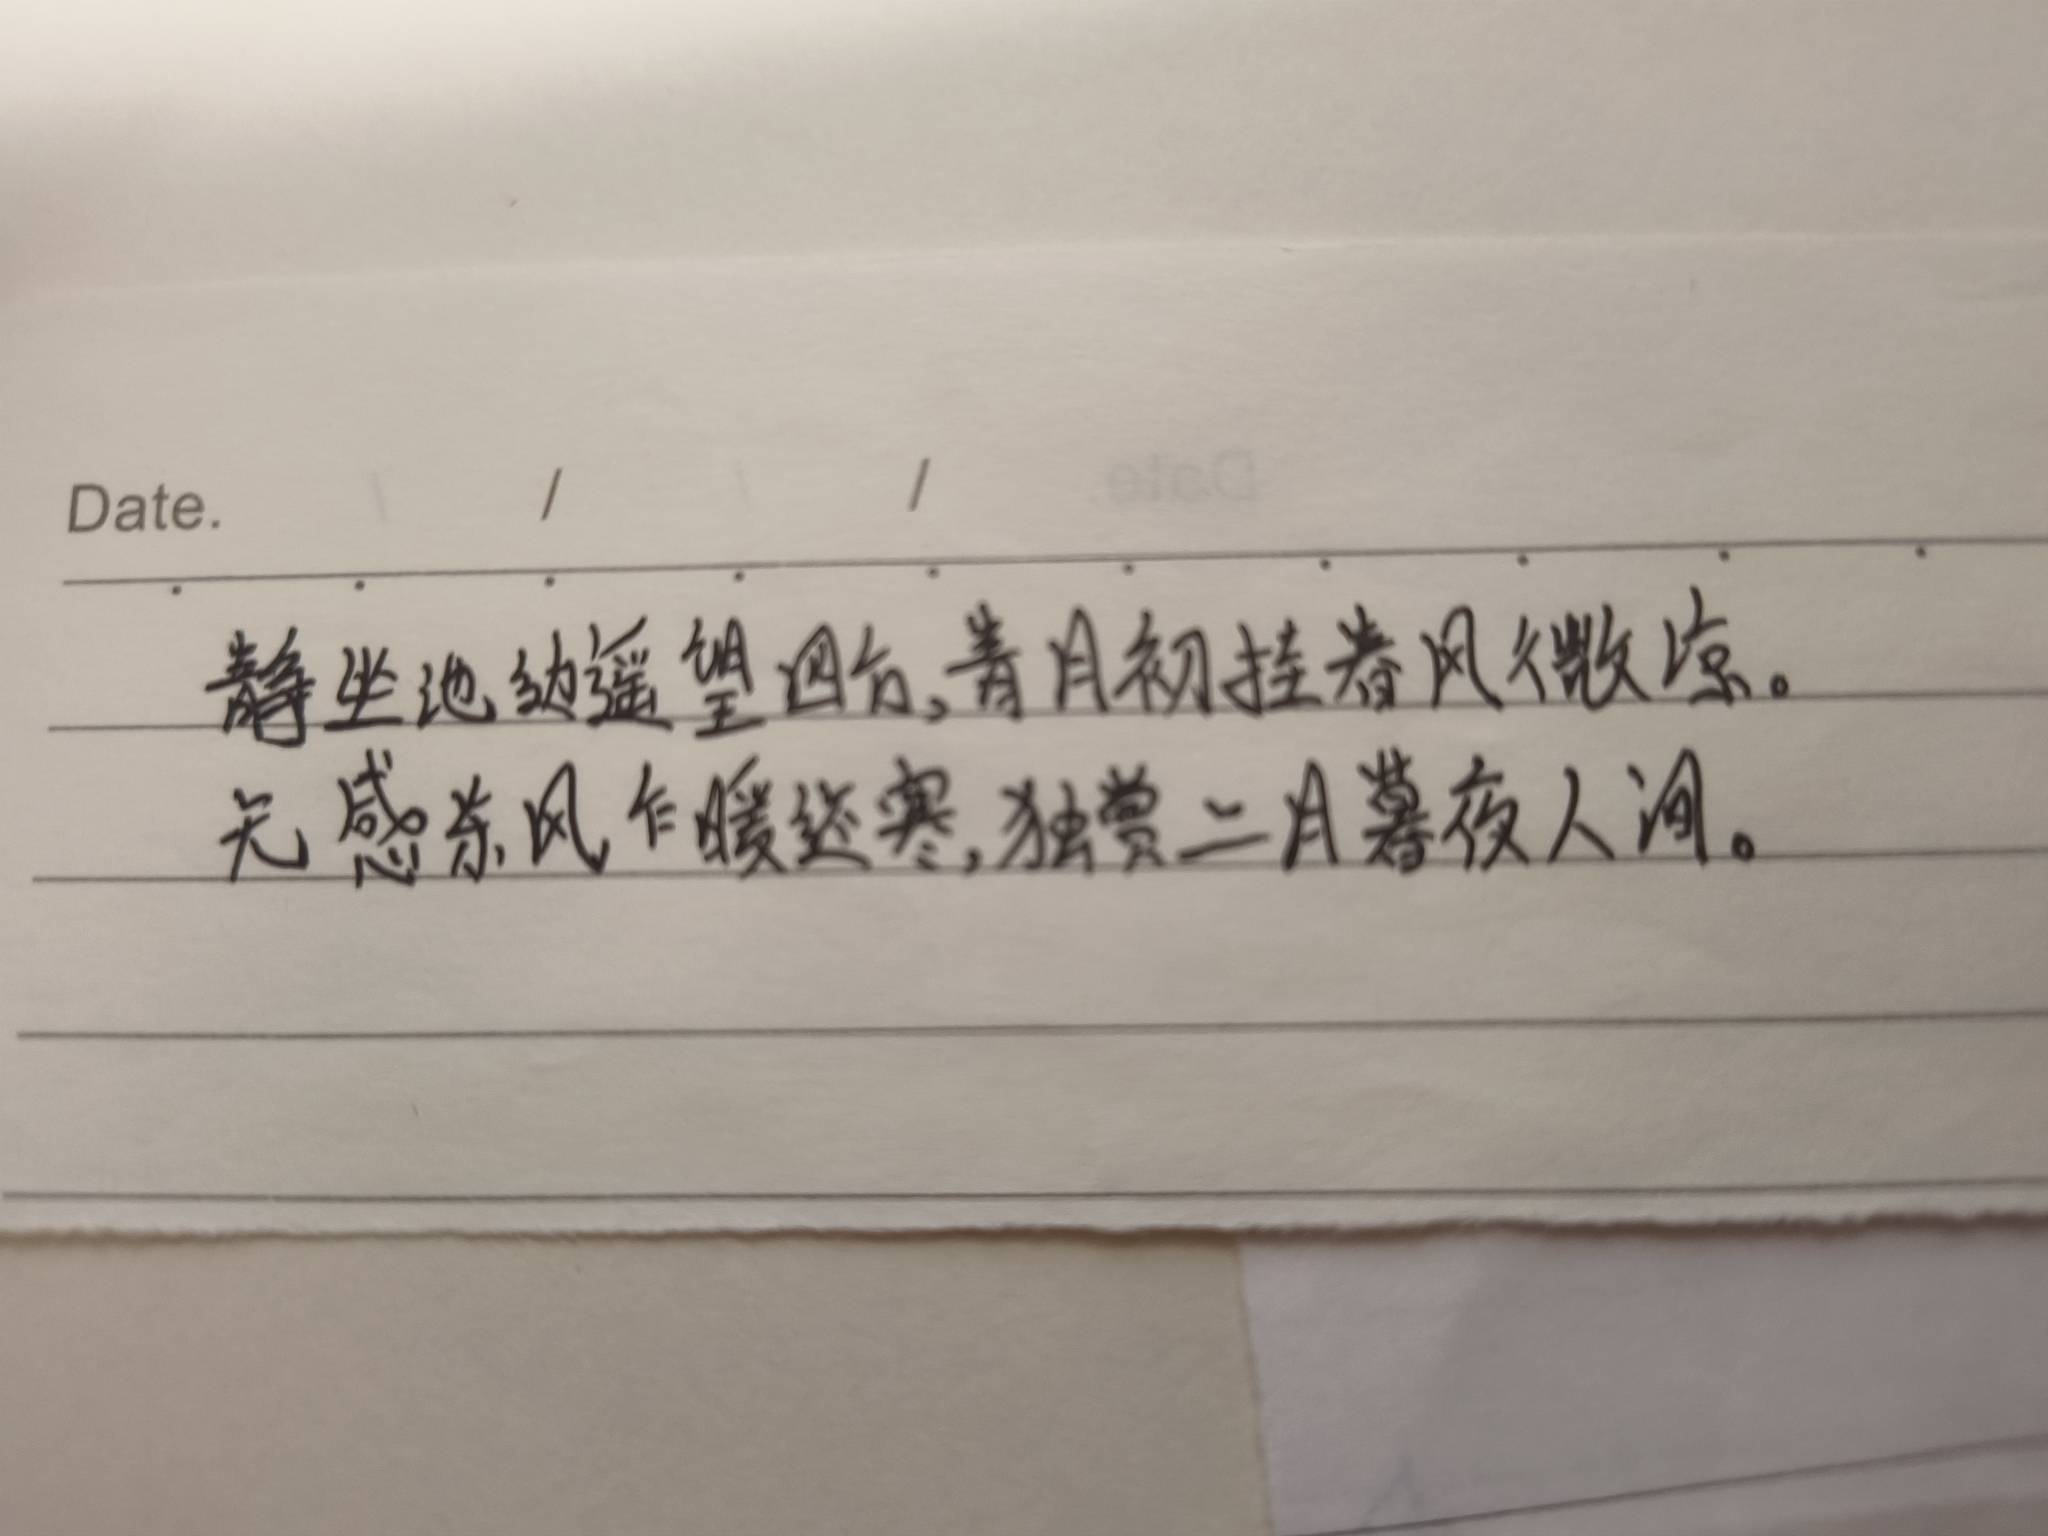 Date. / /
静坐池幼遥望四方,青月初挂春风微凉。
无感东风乍暖还寒,独赏二月暮夜人间。